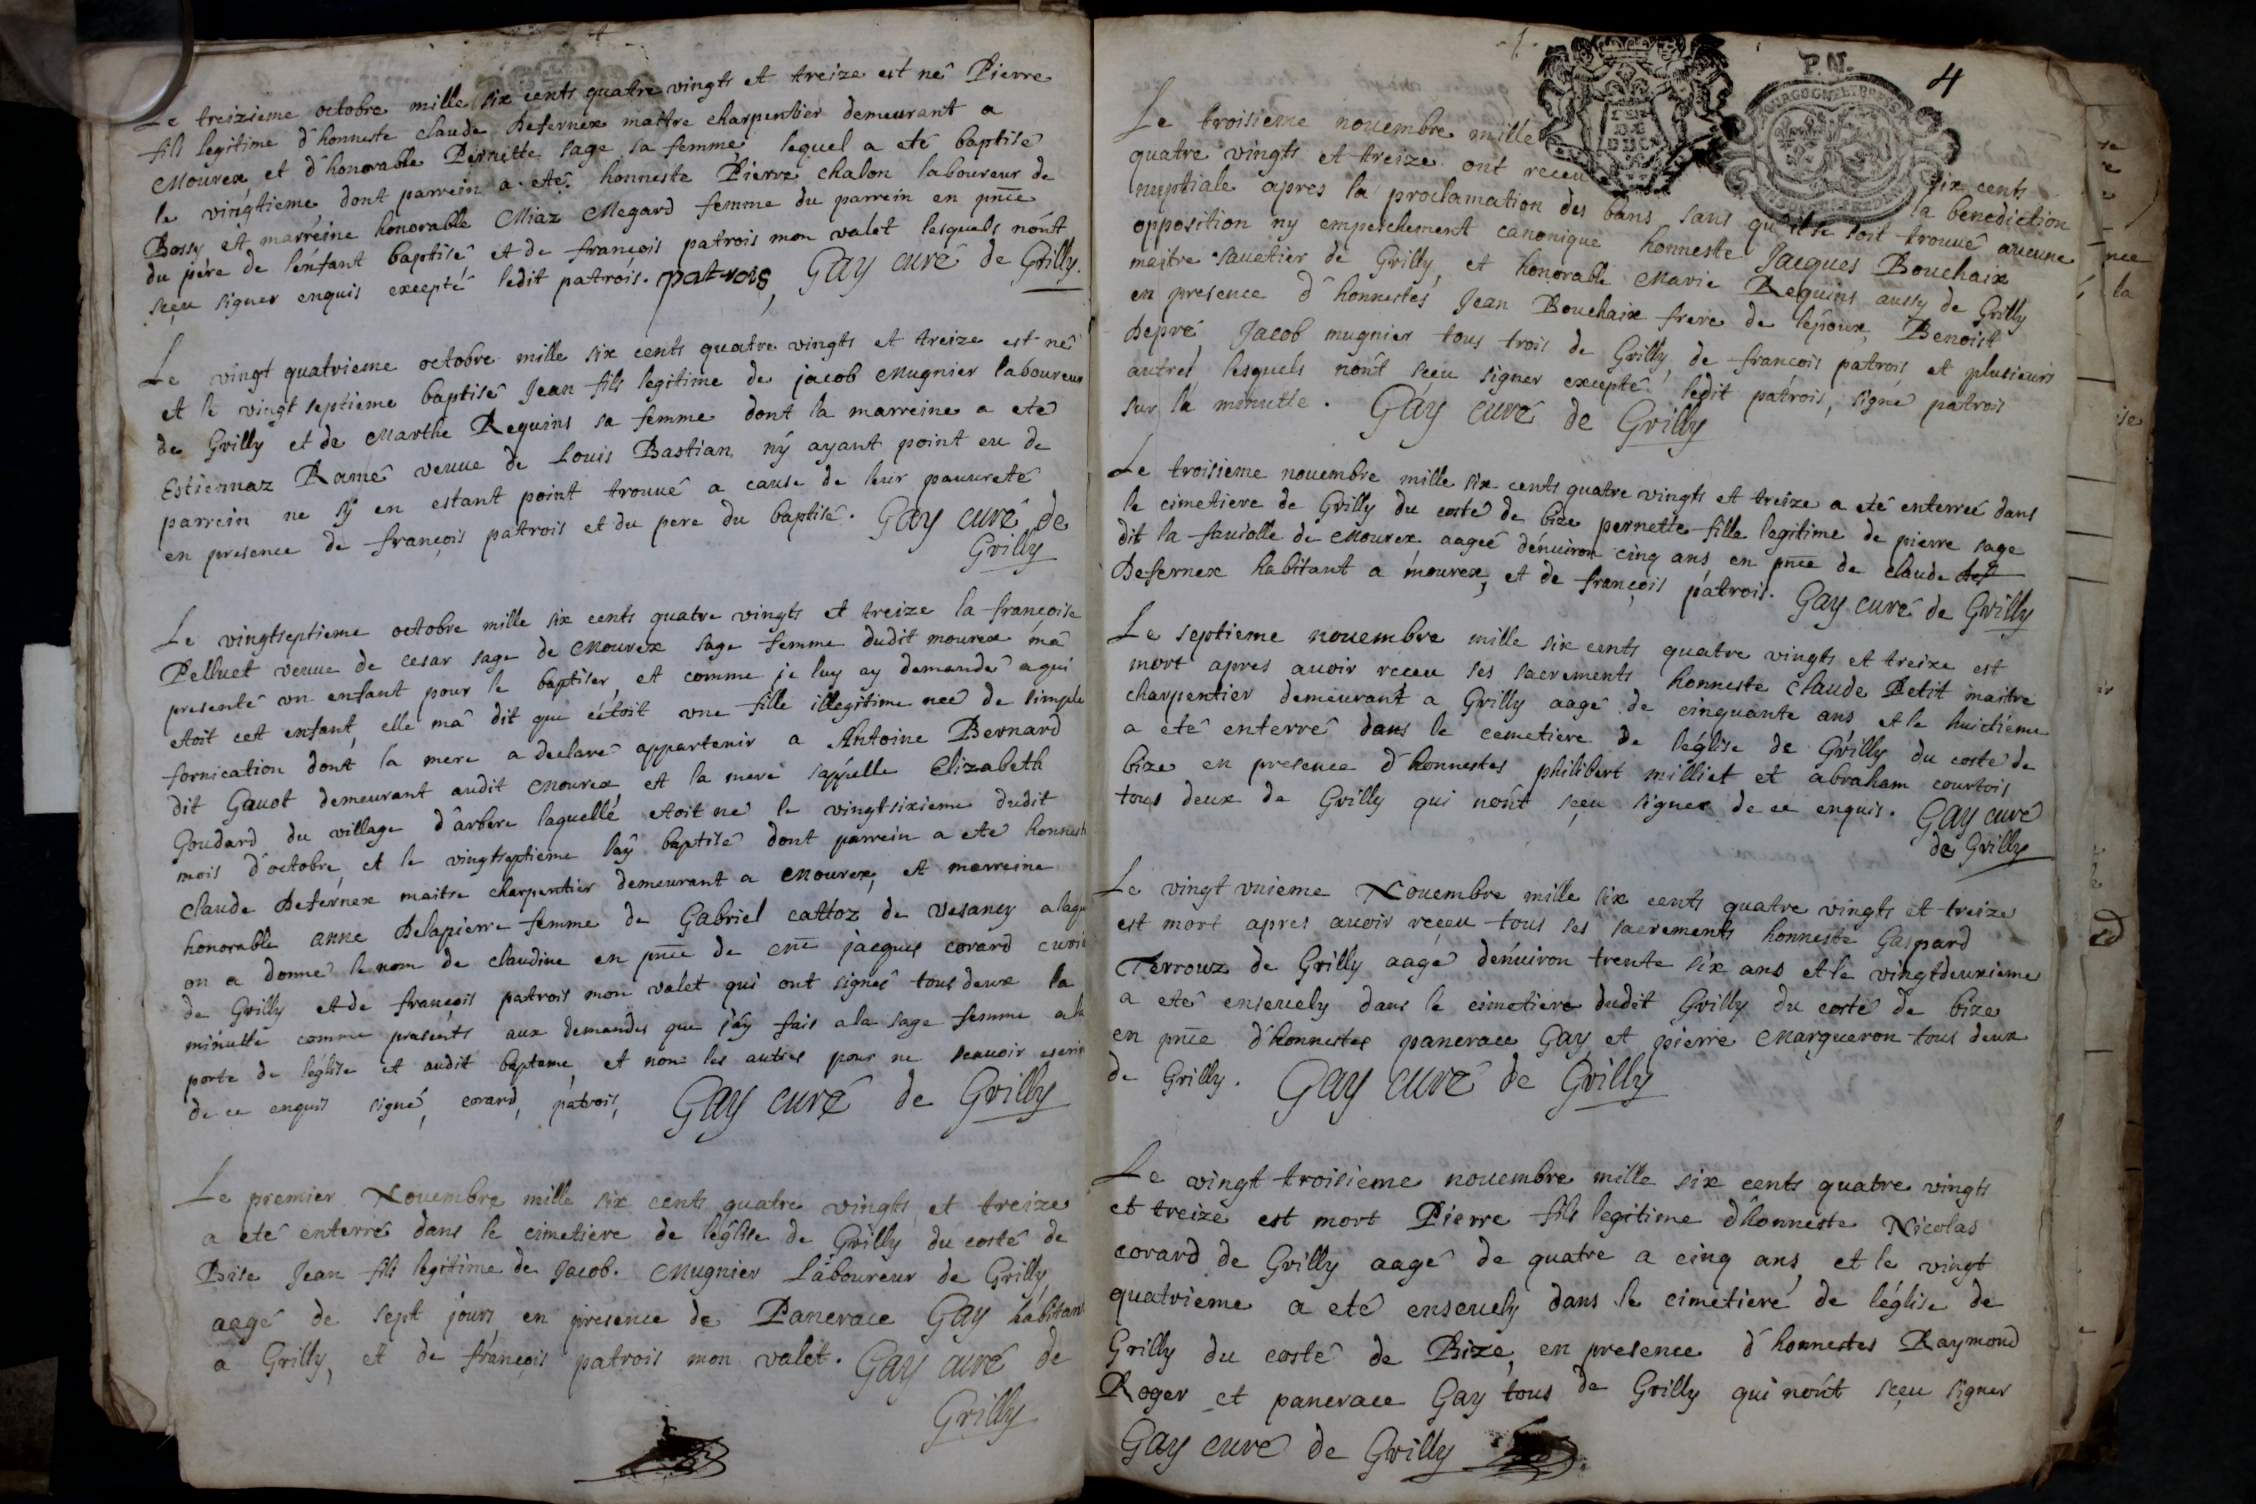 Le treizieme octobre mille six cents quatre vingts et treize est né Pierre
fils legitime d'honneste claude Defernex maitre charpentier demeurant a
Mourex, et d'honorable Pernette sage sa femme lequel a eté baptisé
le vingtieme dont parrein a eté honneste Pierre chalon laboureur de
Bossy et marreine honorable Miaz Megard femme du parrein en pnce
du pere de l'enfant baptisé et de françois patrois mon valet lesquels n'ont
sçeu signer enquis excepté ledit patrois. patrois, Gay curé de Grilly.
Le vingt quatrieme octobre mille six cents quatre vingts et treize est né
et le vingt septieme baptisé Jean fils legitime de jacob Mugnier laboureur
de Grilly et de Marthe Requins sa femme dont la marreine a eté
Estiennaz Ramé veuue de Louis Bastian n'y ayant point eu de
parrein ne s'y en estant point trouué a cause de leur pauureté
en presence de françois patrois et du pere du baptisé. Gay curé de
Grilly
Le vingtseptieme octobre mille six cents quatre vingts et treize la françoise
Pelluet veuue de cesar sage de Mourex sage femme dudit mourex m'a
presenté vn enfant pour le baptiser, et comme je luy ay demandé a qui
etoit cet enfant, elle m'a dit que c'étoit vne fille illegitime neé de simple
fornication dont la mere a declaré appartenir a Antoine Bernard
dit Gauot demeurant audit Mourex et la mere s'appelle Elizabeth
Goudard du village d'arbere laquelle etoit né le vingtsixieme dudit
mois d'octobre, et le vingtseptieme l'ay baptisé dont parrein a eté honnest
claude Defernex maitre charpentier demeurant a Mourex, et marreine
honorable anne Delapierre femme de Gabriel cattoz de Vesancy a laqu
on a donné le nom de claudine en pnce de me jacques corard curi
de Grilly et de françois patrois mon valet qui ont signé tous deux la
minutte comme presents aux demandes que j'ay fais a la sage femme a la
porte de l'église et audit bapteme, et non les autres pour ne sçauoir escri
de ce enquis signé, corard, patrois, Gay curé de Grilly
Le premier Nouembre mille six cents quatre vingts et treize
a eté enterré dans le cimetiere de l'église de Grilly du costé de
Bise Jean fils legitime de Jacob. Mugnier Laboureur de Grilly
aagé de sept jours en presence de Pancrace Gay habitant
a Grilly, et de françois patrois mon valet. Gay curé de
Grilly
P.N.
4
Le troisieme nouembre mille six cents
quatre vingts et treize ont receu la benediction
nuptiale apres la proclamation des bans sans qu'il se soit trouué aucune
opposition ny empeschement canonique honneste Jacques Bouchaix
maitre sauetier de Grilly, et honorable Marie Requins aussy de Grilly
en presence d'honnestes Jean Bouchaix frere de l'époux, Benoist
Depré Jacob mugnier tous trois de Grilly, de françois patrois et plusieurs
autres lesquels n'ont sçeu signer excepté ledit patrois, signé patrois
sur la minutte. Gay curé de Grilly
Le troisieme nouembre mille six cents quatre vingts et treize a eté enterreé dans
le cimetiere de Grilly du costé de bize pernette fille legitime de pierre sage
dit la fauiolle de Mourex aageé d'énuiron cinq ans, en pnce de claude def
Defernex habitant a mourex, et de françois patrois. Gay curé de Grilly
Le septieme nouembre mille six cents quatre vingts et treize est
mort apres auoir receu ses sacrements honneste claude Petit maitre
charpentier demeurant a Grilly aagé de cinquante ans et le huictieme
a eté enterré dans le cemetiere de l'église de Grilly du costé de
bize en presence d'honnestes philibert milliet et abraham courtois
tous deux de Grilly qui n'ont sçeu signer de ce enquis. Gay curé
de Grilly
Le vingt vnieme Nouembre mille six cents quatre vingts et treize
est mort apres auoir reçeu tous ses sacrements honneste Gaspard
Terrouz de Grilly aagé d'énuiron trente six ans et le vingtdeuxieme
a eté enseuely dans le cimetiere dudit Grilly du costé de bize
en pnce d'honnestes pancrace Gay et pierre Margueron tous deux
de Grilly. Gay curé de Grilly
Le vingt troisieme nouembre mille six cents quatre vingts
et treize est mort Pierre fils legitime d'honneste Nicolas
corard de Grilly aagé de quatre a cinq ans, et le vingt
quatrieme a eté enseuely dans le cimetiere de l'église de
Grilly du costé de Bize, en presence d'honnestes Raymond
Roger et pancrace Gay tous de Grilly qui n'ont sçeu signer
Gay curé de Grilly